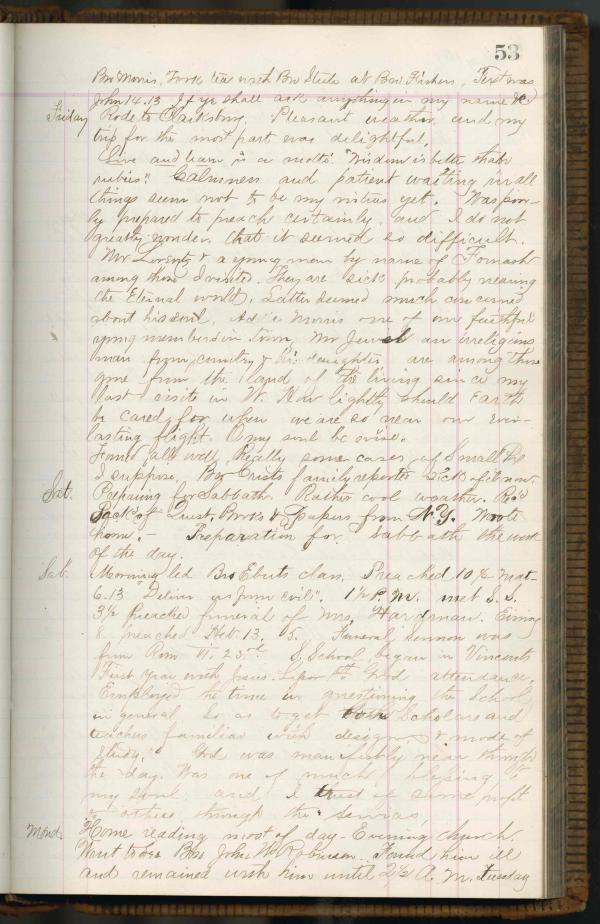 53
Bro Morris, Took tea with Bro Steele at Bro Fishers, Text was
John 14.13 If ye shall ask anything in my name &c
Friday Rode to Clarksburg. Pleasant weather and my
trip for the most part was delightful.
Live and learn is a motto. "Wisdom is better than
rubies". Calmness and patient waiting in all
things seem not to be my virtues yet. Was poor-
ly prepared to preach certainly, and I do not
greatly wonder, that it seemed so difficult.
Mr Lorentz & a young man by name of Fornash
among those I visited. They are sick probably nearing
the Eternal world, Latter seemed much concerned
about his soul. Morris one of our faithful
young members in town, Mr Jewel an irreligious
man from country & his daughter are among those
gone from the land of the living since my
last visite in W. How lightly should Earth
be cared for when we are so near our ever-
lasting flight. O my soul be wise.
Found all well, Really some cases of Small Pox
I suppose. Bro Crists family reported sick of it now.
Sat. Preparing for Sabbath. Rather cool weather. Rec'd
Pack of Quest, Books & papers from N.Y. Wrote
home. - Preparation for Sabbath the work
of the day.
Sab. Morning led Bro Eberts class. Preached 10 1/2 Mat-
6.13 Deliver us from evil". 1 1/2 P.M. met S. S.
3 1/2 Preached funeral of Mrs, Hardman. Eving
8 preached Heb. 13, 5. Funeral sermon was
from Rom VI. 23rd S, School began in Vincents
First Year with Jesus. Good attendance,
Employed the time in questioning the School
in general so as to get both Scholars and
teachers familiar with design & mode of
study. God was manifestly near through
the day. Was one of much blessing to
my soul and I trust of some profit
to others through the services,
Mond. Home reading most of day - Evening church.
Went to see Bro John W. Robinson. Found him ill
and remained with him until 2 1/2 A. M. Tuesday